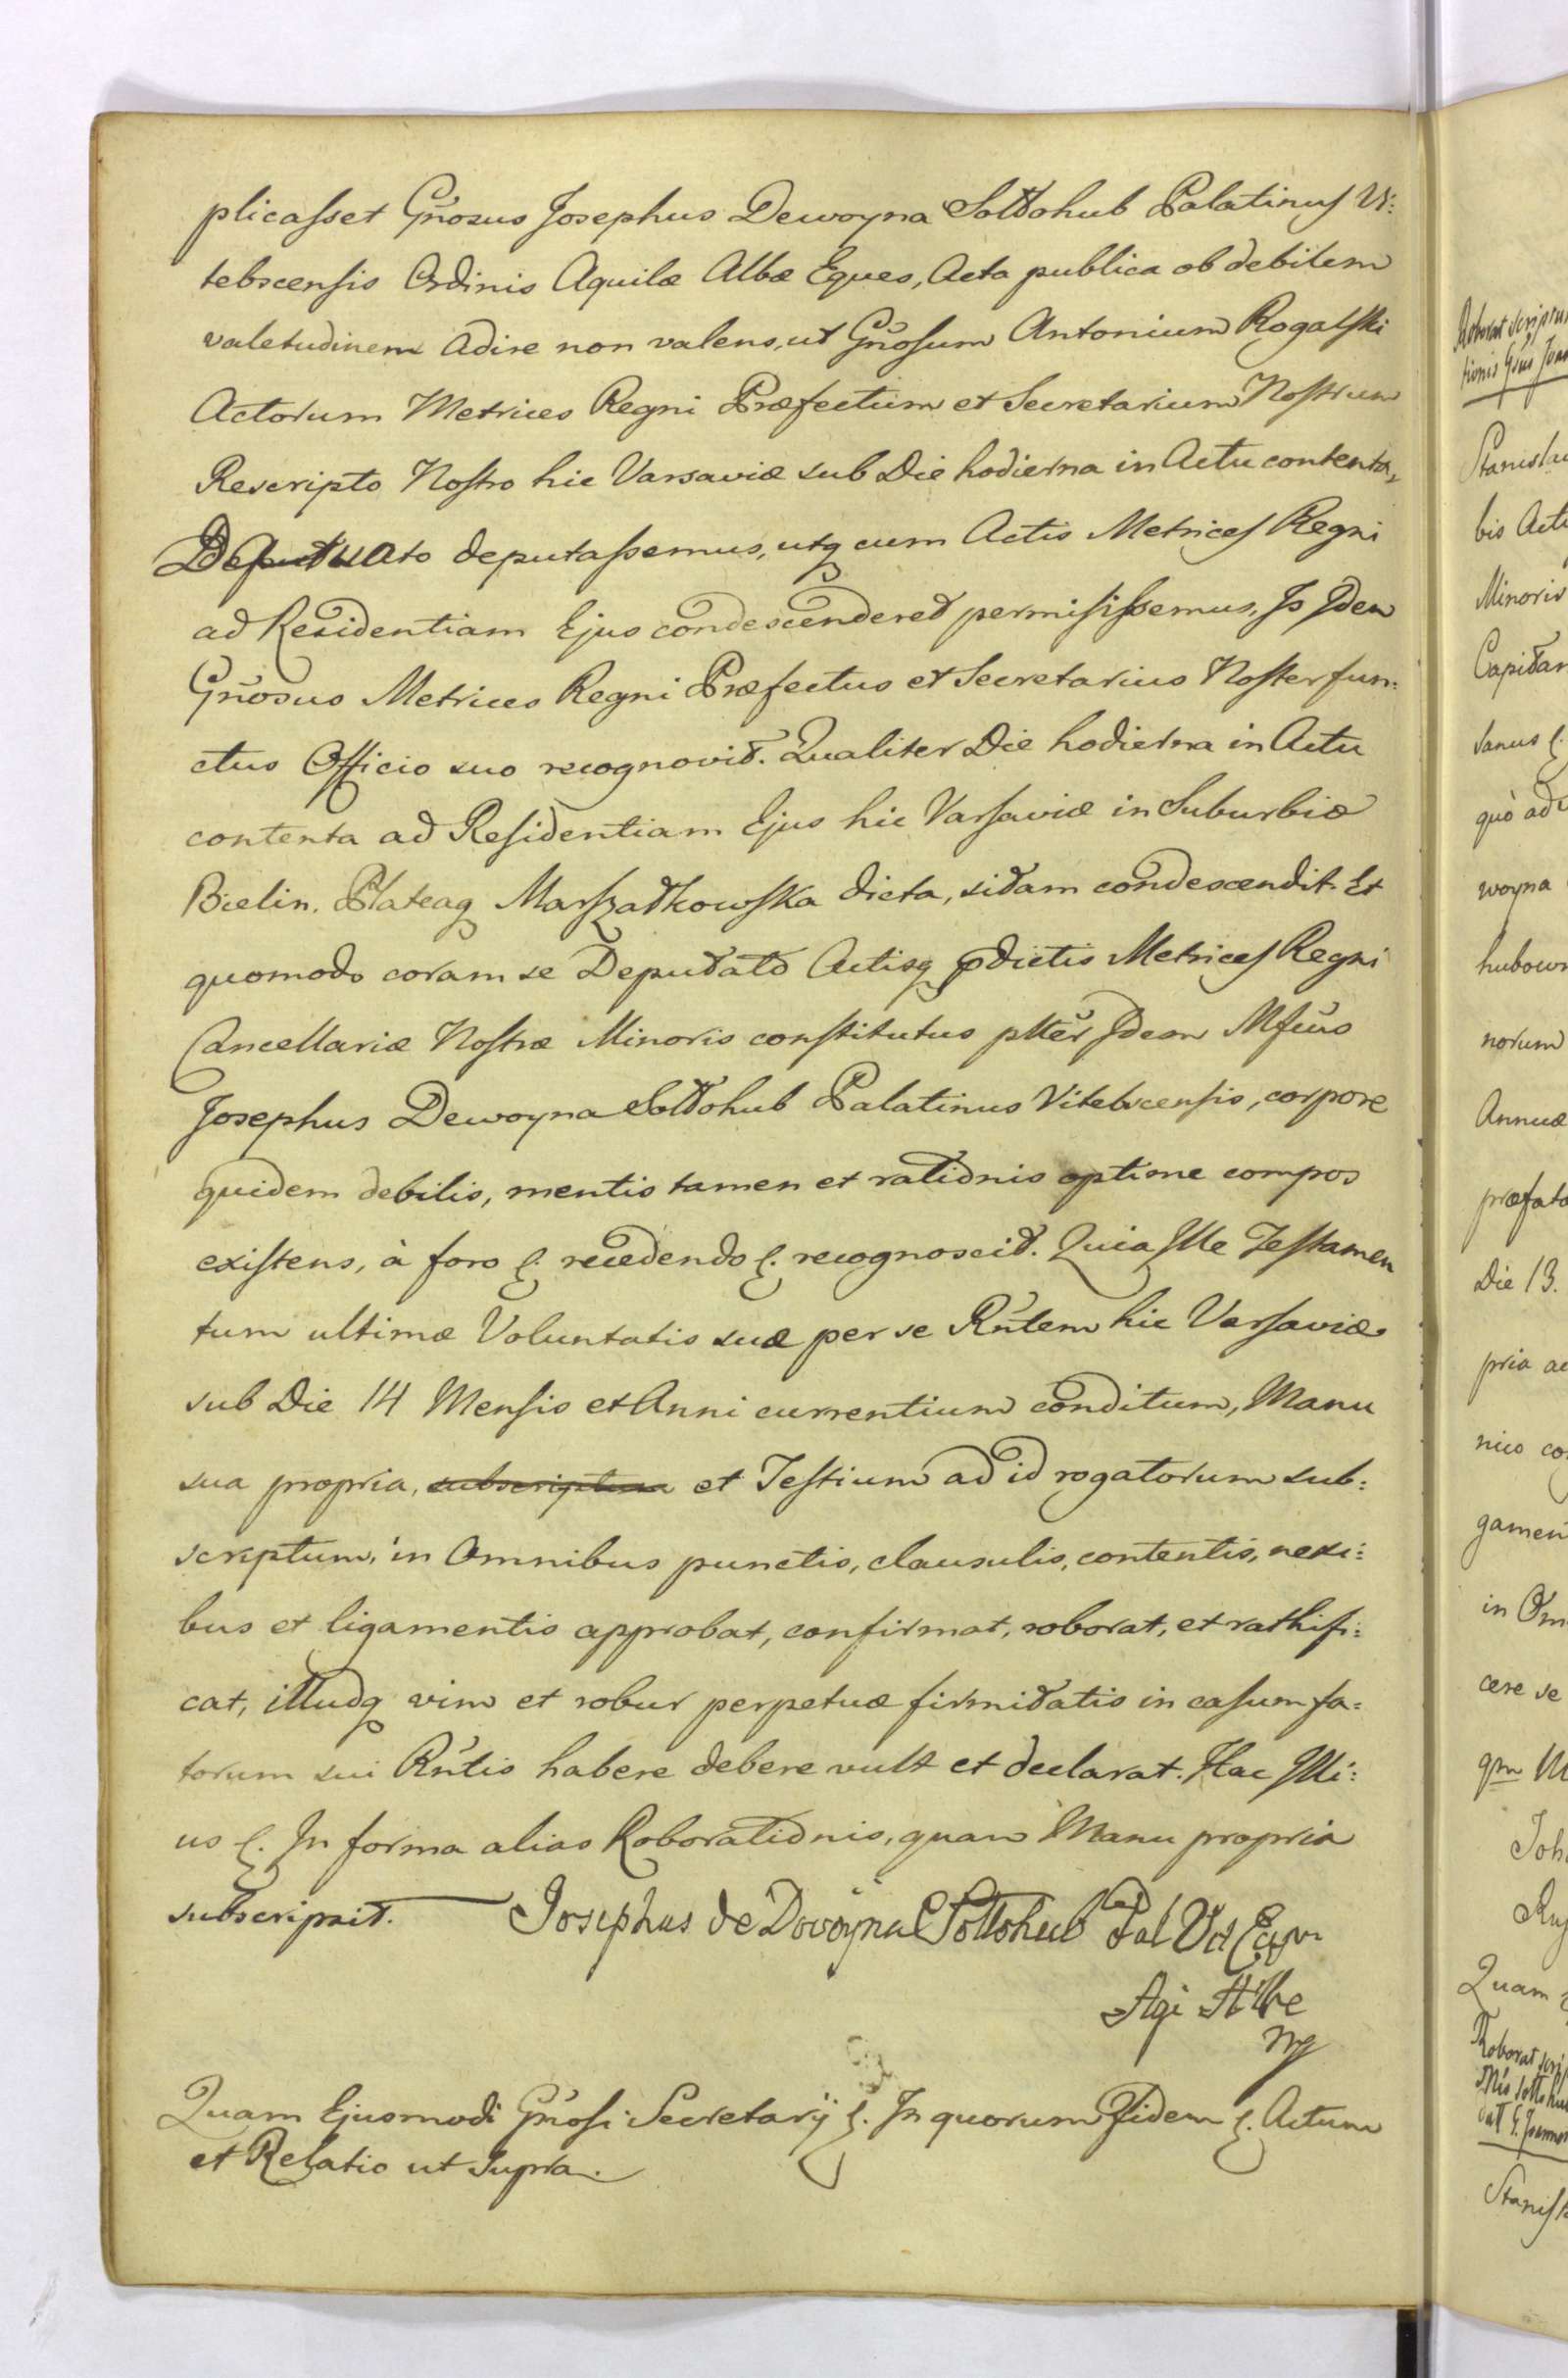 plicasset Gnosus Josephus Dewoyna Sołłohub Palatinus Vi:
tebscensis Ordinis Aquilæ Albæ Eques, Acta publica ob debilem
valetudinem adire non valens, ut Gnosum Antonium Rogalski
Actorum Metrices Regni Præfectum et Secretarium Nostrum
Rescripto Nostro hic Varsaviæ sub Die hodierna in Actu contenta,
deputassemus, utq cum Actis Metrices Regni
ad Residentiam Ejus condescenderet permisissemus, Is Idem
Gnosus Metrices Regni Præfectus et Secretarius Noster fun:
ctus Officio suo recognovit. Qualiter Die hodierna in Actu
contenta ad Residentiam Ejus hic Varsaviæ in Suburbio
Bielin. Plateaq Marszałkowska dicta, sitam condescendit. Et
quomodo coram se Deputato Actisq pdictis Metrices Regni
Cancellariæ Nostræ Minoris constitutus pltēr Idem Mfcus
Josephus Dewoyna Sołłohub Palatinus Vitebscensis, corpore
quidem debilis, mentis tamen et rationis optime compos
existens, à foro &. recedendo &. recognoscit. Quia Ille Testamen
tum ultimæ Voluntatis suæ per se Rntem hic Varsaviæ
sub Die 14 Mensis et Anni currentium conditum, Manu
sua propria, subscriptum et Testium ad id rogatorum sub:
scriptum, in Omnibus punctis, clausulis, contentis, nexi:
bus et ligamentis approbat, confirmat, roborat, et rathifi:
cat, illudq vim et robur perpetuæ firmitatis in casum fa:
torum sui Rntis habere debere vult et declarat. Hac Illi:
us &. In forma alias Roborationis, quam Manu propria
subscripsit. Josephus de Dovoyna Sołłohub Pal Vit Eqs
Aqi Albe
mp
Quam Ejusmodi Gnosi Secretarÿ &. In quorum Fidem &. Actum
et Relatio ut Supra.
Roborat scriptu
Stanislau
bis Actu
Minoris
Capitan
sanus &.
quò ad
woyna
hubow
norum
Annuæ
præfato
Die 13.
pria ac
nico co
gamen
in Om
cere se
qm M
Joh
Quam
Roborat scri
Stanisl